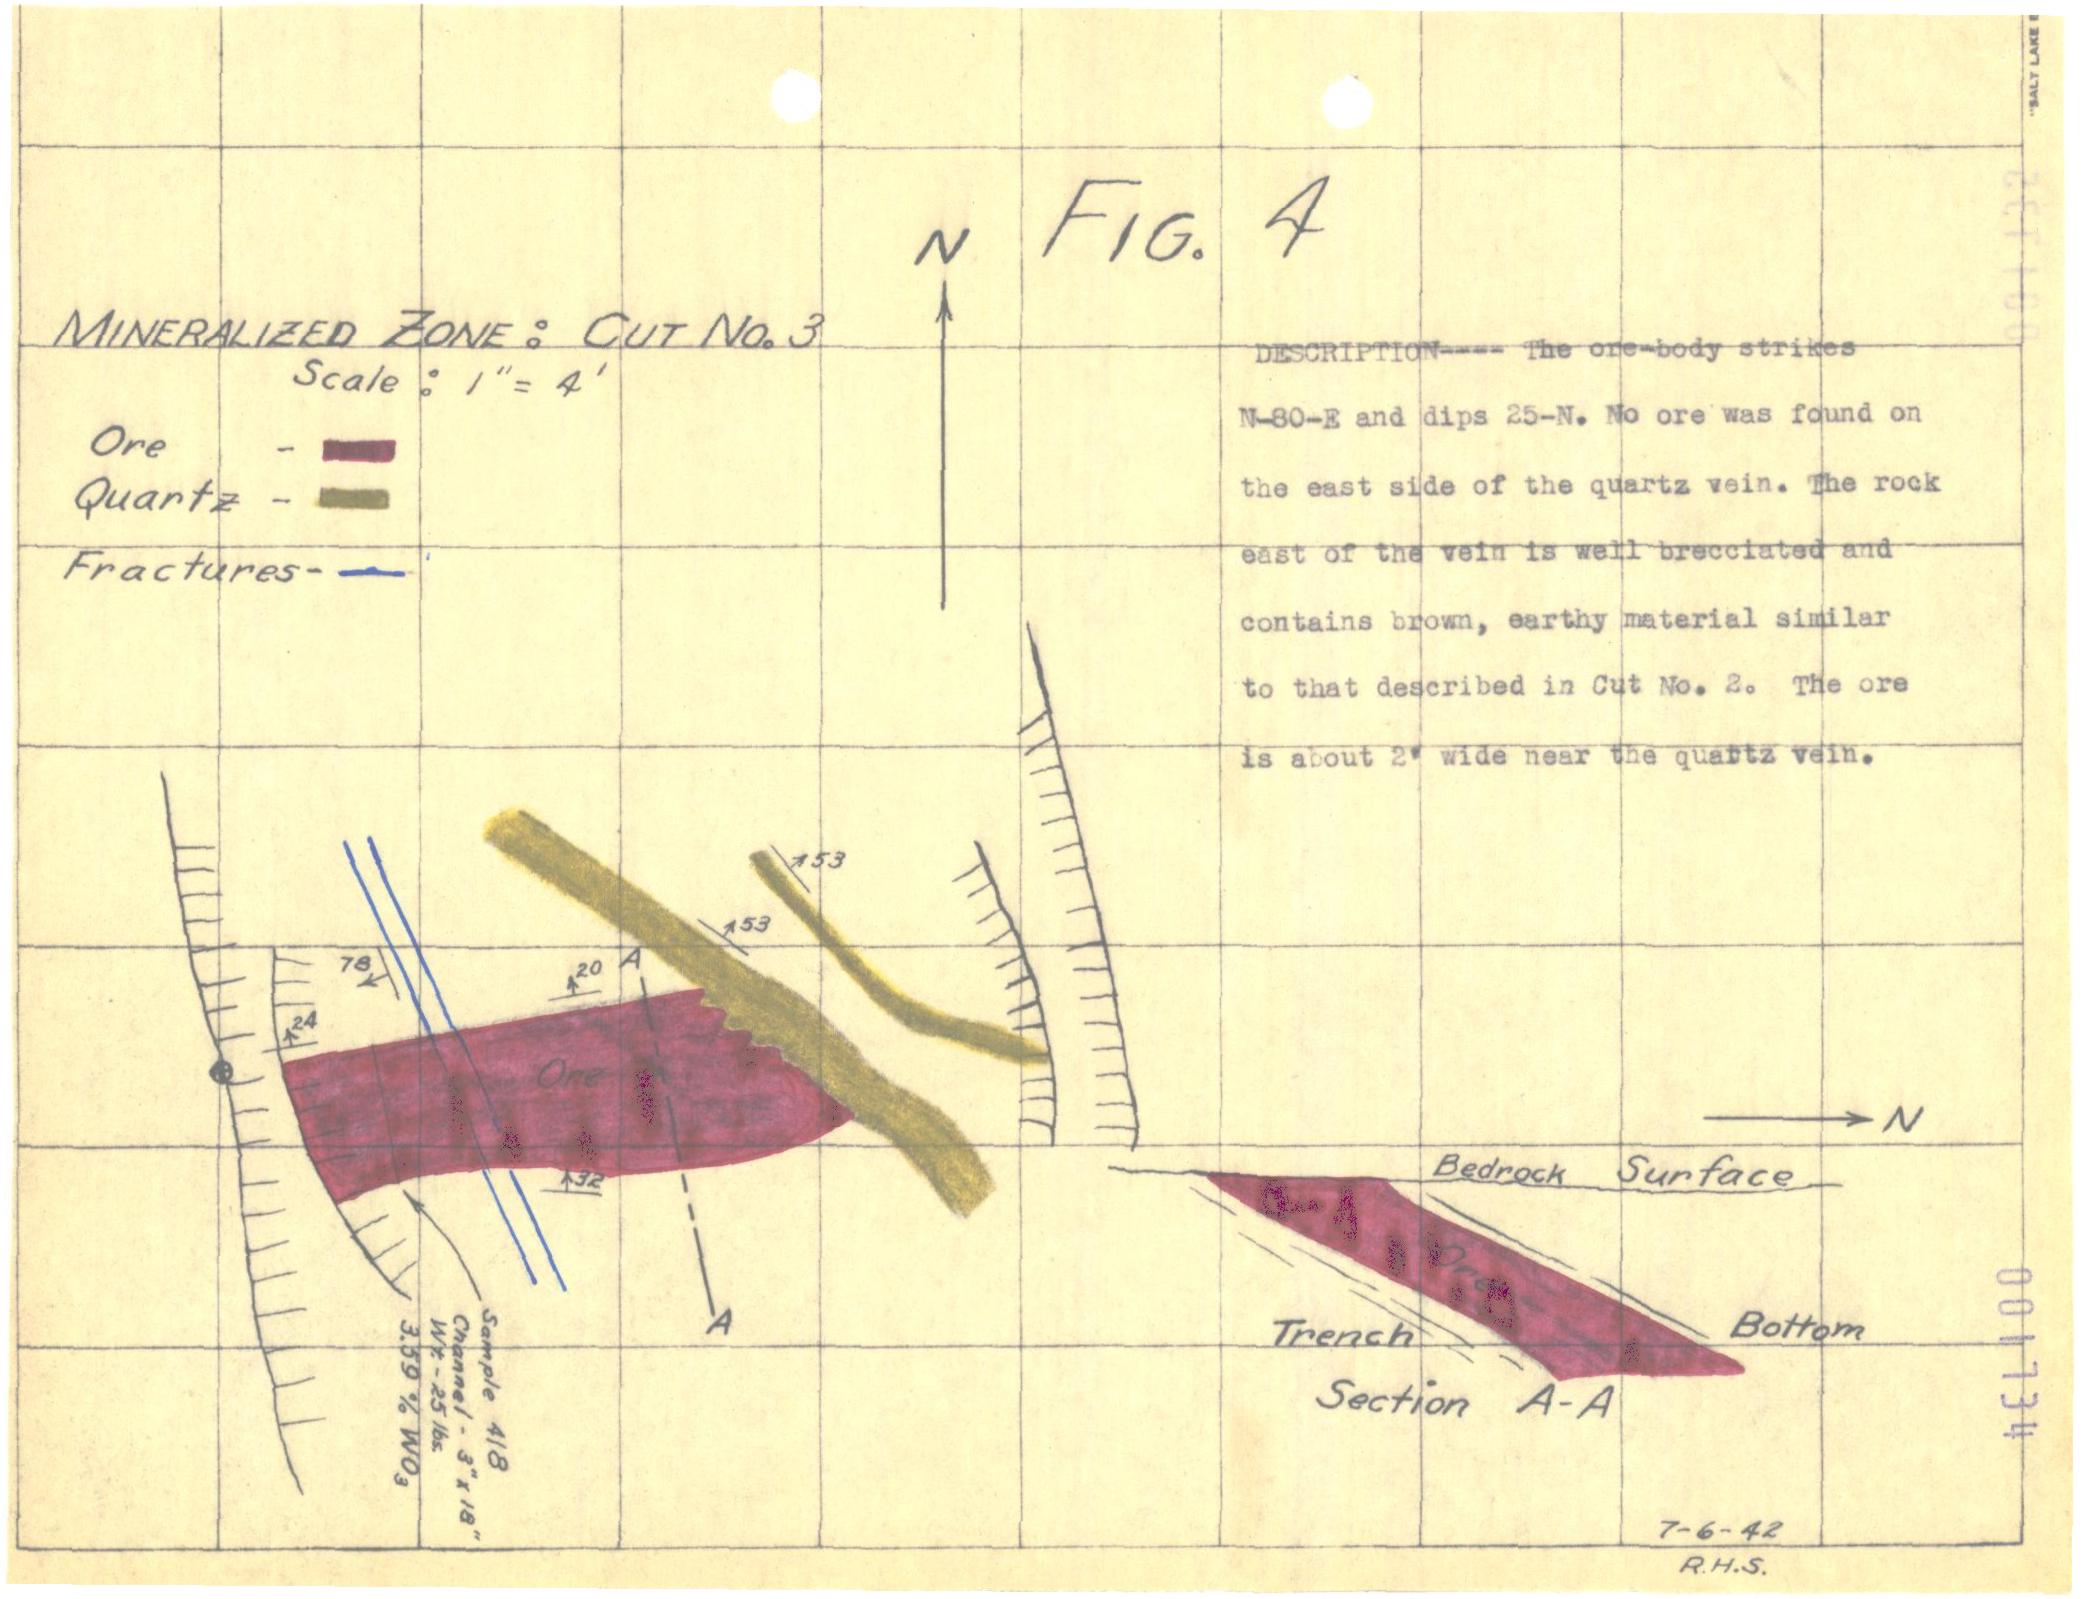 "SALT LAKE
FIG. 4
N
MINERALIZED ZONE: CUT NO. 3
Scale: 1" = 4'
Ore -
Quartz -
Fractures -
DESCRIPTION---- The ore-body strikes
N-80-E and dips 25-N. No ore was found on
the east side of the quartz vein. The rock
east of the vein is well brecciated and
contains brown, earthy material similar
to that described in Cut No. 2. The ore
is about 2' wide near the quartz vein.
53
53
78
20
A
24
Ore
32
A
Sample 418
Channel - 3" x 18"
Wt - 25 lbs.
3.59 % WO3
N
Bedrock Surface
Ore
Trench Bottom
Section A-A
001734
7-6-42
R.H.S.